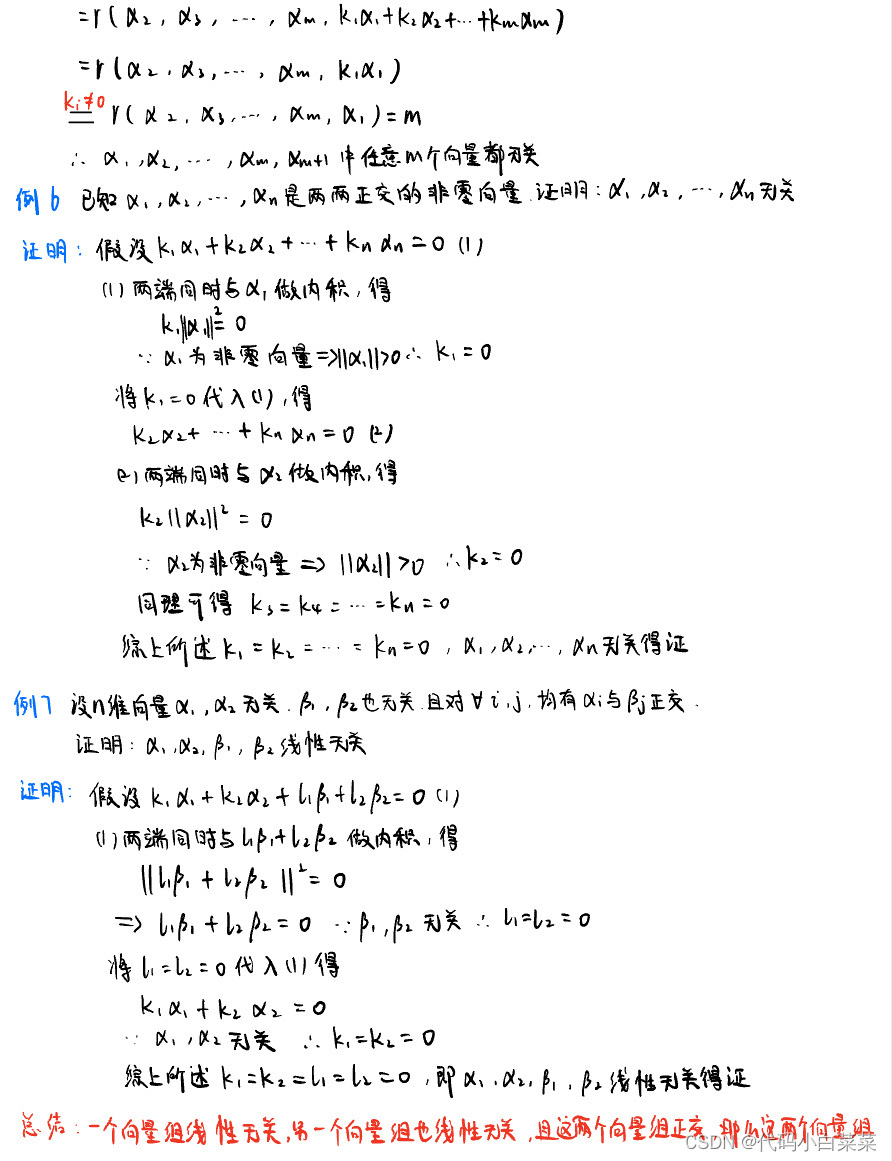 =r(α₂, α₃, ⋯, αm, k₁α₁+k₂α₂+⋯+kmαm)
=r(α₂, α₃, ⋯, αm, k₁α₁)
k₁≠0
= r(α₂, α₃, ⋯, αm, α₁)=m
∴ α₁, α₂, ⋯, αm, αm+1 中任意m个向量都无关
例6 已知α₁, α₂, ⋯, αn是两两正交的非零向量.证明:α₁, α₂, ⋯, αn无关
证明: 假设k₁α₁+k₂α₂+⋯+knαn=0 (1)
(1)两端同时与α₁做内积,得
k₁||α₁||²=0
∵ α₁为非零向量=>||α₁||>0∴ k₁=0
将k₁=0代入(1),得
k₂α₂+⋯+knαn=0 (2)
(2)两端同时与α₂做内积,得
k₂||α₂||²=0
∵ α₂为非零向量=>||α₂||>0 ∴k₂=0
同理可得 k₃=k₄=⋯=kn=0
综上所述k₁=k₂=⋯=kn=0, α₁,α₂,⋯,αn无关得证
例7 设n维向量α₁,α₂无关.β₁,β₂也无关.且对∀i,j,均有αi与βj正交.
证明: α₁,α₂,β₁,β₂线性无关
证明: 假设k₁α₁+k₂α₂+l₁β₁+l₂β₂=0 (1)
(1)两端同时与l₁β₁+l₂β₂做内积,得
||l₁β₁+l₂β₂||²=0
=> l₁β₁+l₂β₂=0 ∵β₁,β₂无关 ∴l₁=l₂=0
将l₁=l₂=0代入(1)得
k₁α₁+k₂α₂=0
∵ α₁,α₂无关 ∴k₁=k₂=0
综上所述k₁=k₂=l₁=l₂=0,即α₁,α₂,β₁,β₂线性无关得证
总结:一个向量组线性无关,另一个向量组也线性无关,且这两个向量组正交,那么这两个向量组
CSDN @代码小白菜菜